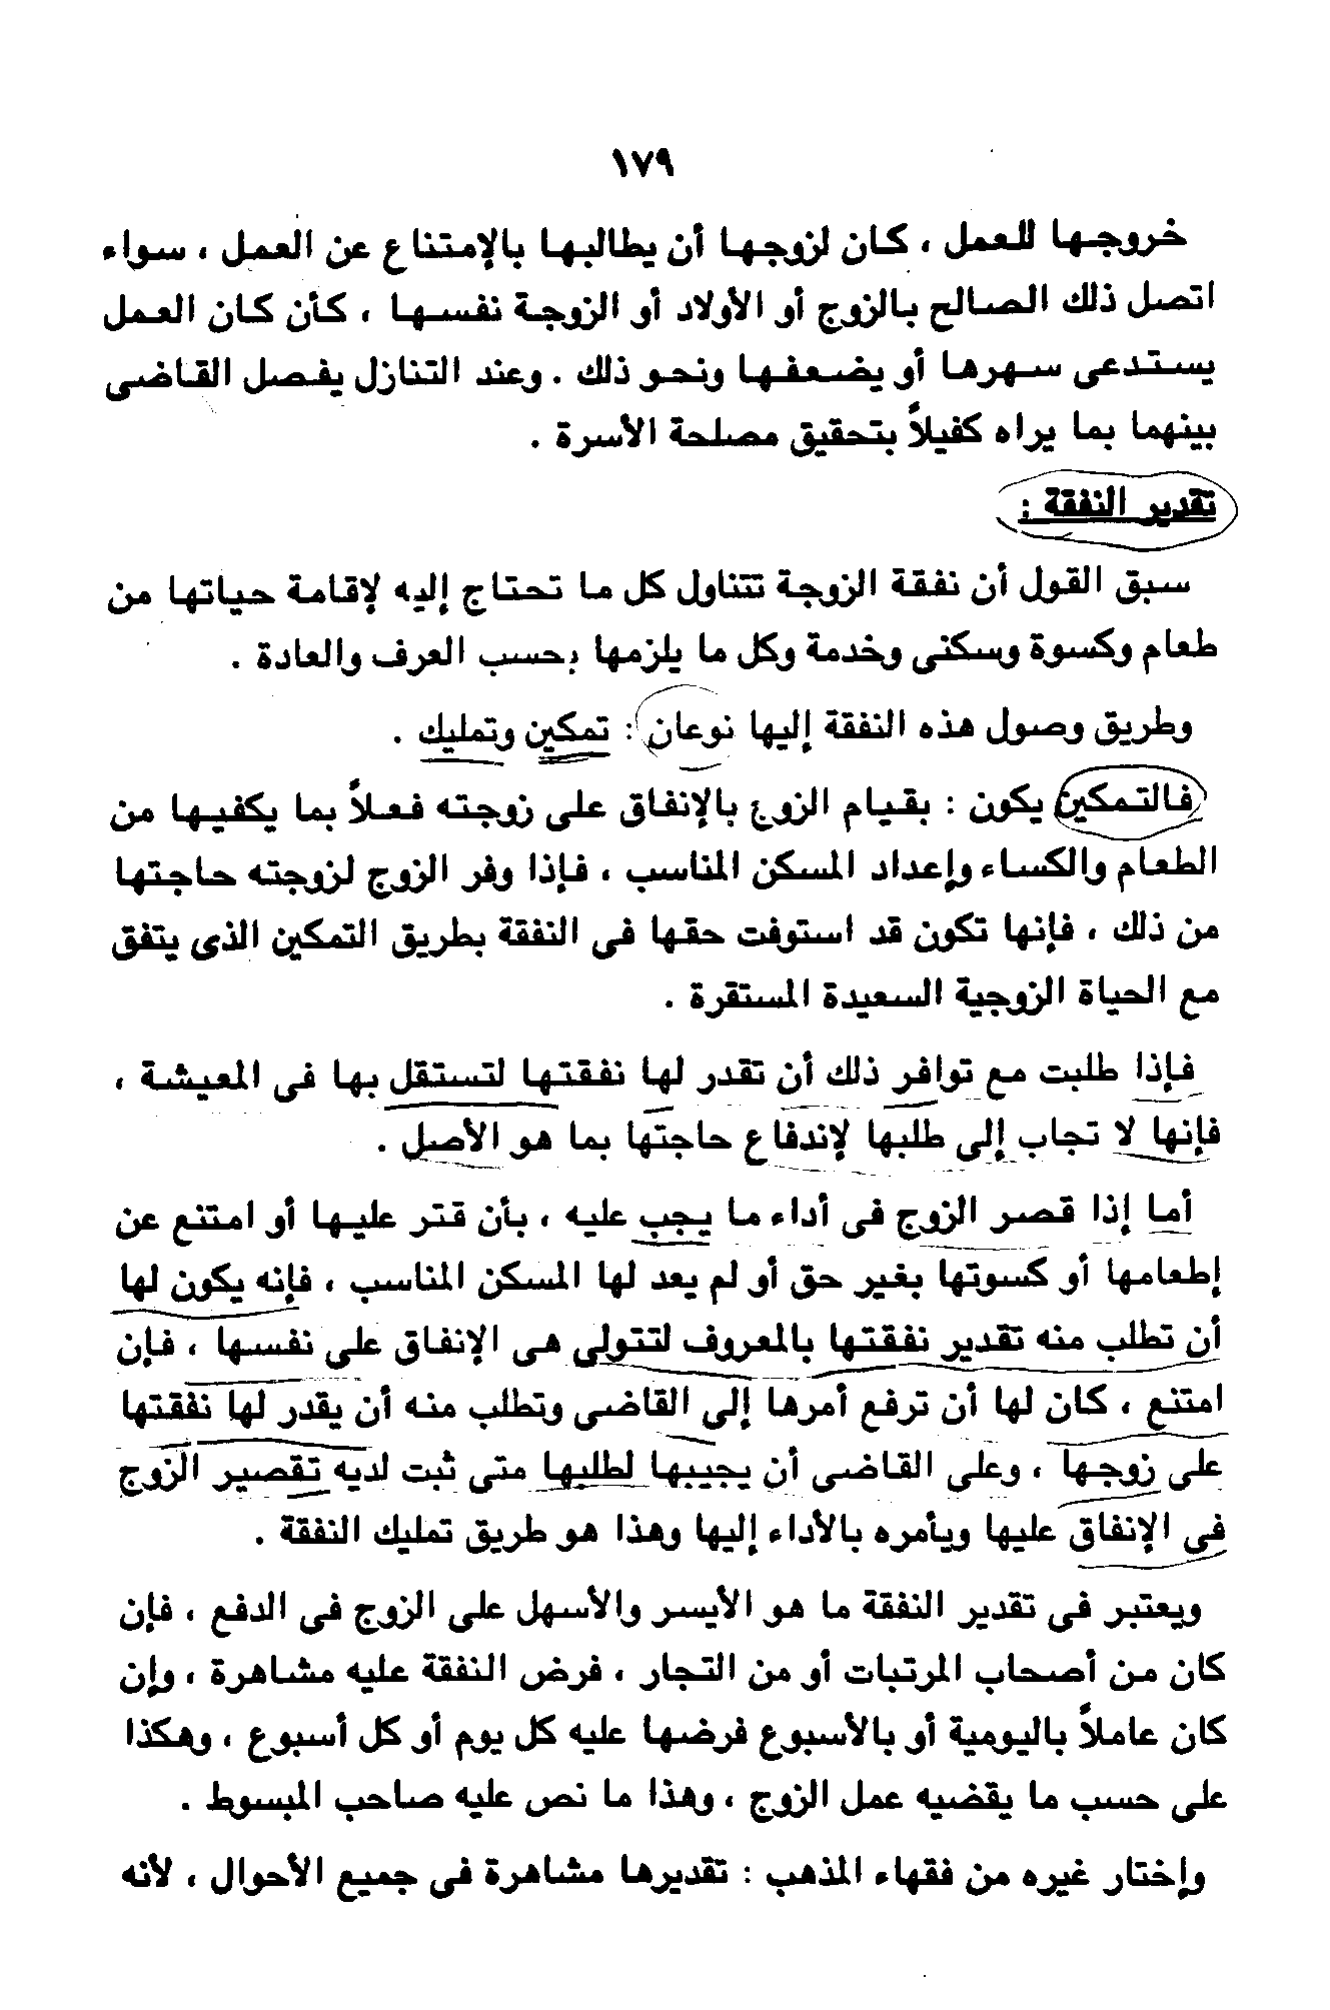 ١٧٩
خروجها للعمل ، كان لزوجها أن يطالبها بالإمتناع عن العمل ، سواء
اتصل ذلك الصالح بالزوج أو الأولاد أو الزوجة نفسها ، كأن كان العمل
يستدعى سهرها أو يضعفها ونحو ذلك . وعند التنازل يفصل القاضى
بينهما بما يراه كفيلاً بتحقيق مصلحة الأسرة .
تقدير النفقة :
سبق القول أن نفقة الزوجة تتناول كل ما تحتاج إليه لإقامة حياتها من
طعام وكسوة وسكنى وخدمة وكل ما يلزمها بحسب العرف والعادة .
وطريق وصول هذه النفقة إليها نوعان : تمكين وتمليك .
فالتمكين يكون : بقيام الزوج بالإنفاق على زوجته فعلاً بما يكفيها من
الطعام والكساء وإعداد المسكن المناسب ، فإذا وفر الزوج لزوجته حاجتها
من ذلك ، فإنها تكون قد استوفت حقها فى النفقة بطريق التمكين الذى يتفق
مع الحياة الزوجية السعيدة المستقرة .
فإذا طلبت مع توافر ذلك أن تقدر لها نفقتها لتستقل بها فى المعيشة ،
فإنها لا تجاب إلى طلبها لإندفاع حاجتها بما هو الأصل .
أما إذا قصر الزوج فى أداء ما يجب عليه ، بأن قتر عليها أو امتنع عن
إطعامها أو كسوتها بغير حق أو لم يعد لها المسكن المناسب ، فإنه يكون لها
أن تطلب منه تقدير نفقتها بالمعروف لتتولى هى الإنفاق على نفسها ، فإن
امتنع ، كان لها أن ترفع أمرها إلى القاضى وتطلب منه أن يقدر لها نفقتها
على زوجها ، وعلى القاضى أن يجيبها لطلبها متى ثبت لديه تقصير الزوج
فى الإنفاق عليها ويأمره بالأداء إليها وهذا هو طريق تمليك النفقة .
ويعتبر فى تقدير النفقة ما هو الأيسر والأسهل على الزوج فى الدفع ، فإن
كان من أصحاب المرتبات أو من التجار ، فرض النفقة عليه مشاهرة ، وإن
كان عاملاً باليومية أو بالأسبوع فرضها عليه كل يوم أو كل أسبوع ، وهكذا
على حسب ما يقضيه عمل الزوج ، وهذا ما نص عليه صاحب المبسوط .
وإختار غيره من فقهاء المذهب : تقديرها مشاهرة فى جميع الأحوال ، لأنه